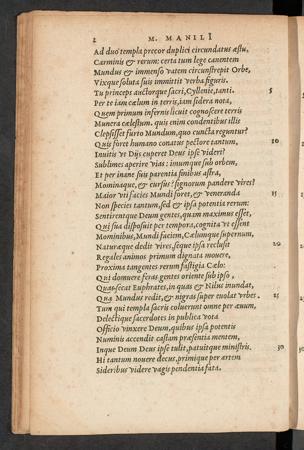 2 M. MANILI
Ad duo templa precor duplici circundatus æstu,
Carminis & rerum: certa tum lege canentem
Mundus & immenso vatem circunstrepit Orbe,
Vixque soluta suis immittit verba figuris.
Tu princeps auctorque sacri, Cyllenie, tanti. 5
Per te iam cælum in terris, iam sidera nota,
Quem primum infernis licuit cognoscere terris
Munera cælestum. quis enim condentibus illis
Clepsisset furto Mundum, quo cuncta reguntur?
Quis foret humano conatus pectore tantum, 10
Inuitis vt Dijs cuperet Deus ipse videri?
Sublimes aperire vias: imumque sub orbem,
Et per inane suis parentia finibus astra,
Nominaque, & cursus: signorum pandere vires?
Maior vti facies Mundi foret, & veneranda 15
Non species tantum, sed & ipsa potentia rerum:
Sentirentque Deum gentes, quam maximus esset,
Qui sua disposuit per tempora, cognita vt essent
Mominibus, Mundi faciem, Cælumque supernum,
Naturæque dedit vires, seque ipsa reclusit 20
Regales animos primum dignata mouere,
Proxima tangentes rerum fastigia Cælo:
Qui domuere feras gentes oriente sub ipso,
Quas secat Euphrates, in quas & Nilus inundat,
Qua Mundus redit, & nigras super euolat vrbes. 25
Tum qui templa sacris coluerunt omne per æuum,
Delectique sacerdotes in publica vota
Officio vinxere Deum, quibus ipsa potentis
Numinis accendit castam præsentia mentem,
Inque Deum Deus ipse tulit, patuitque ministris. 30
Hi tantum nouere decus, primique per artem
Sideribus videre vagis pendentia fata.